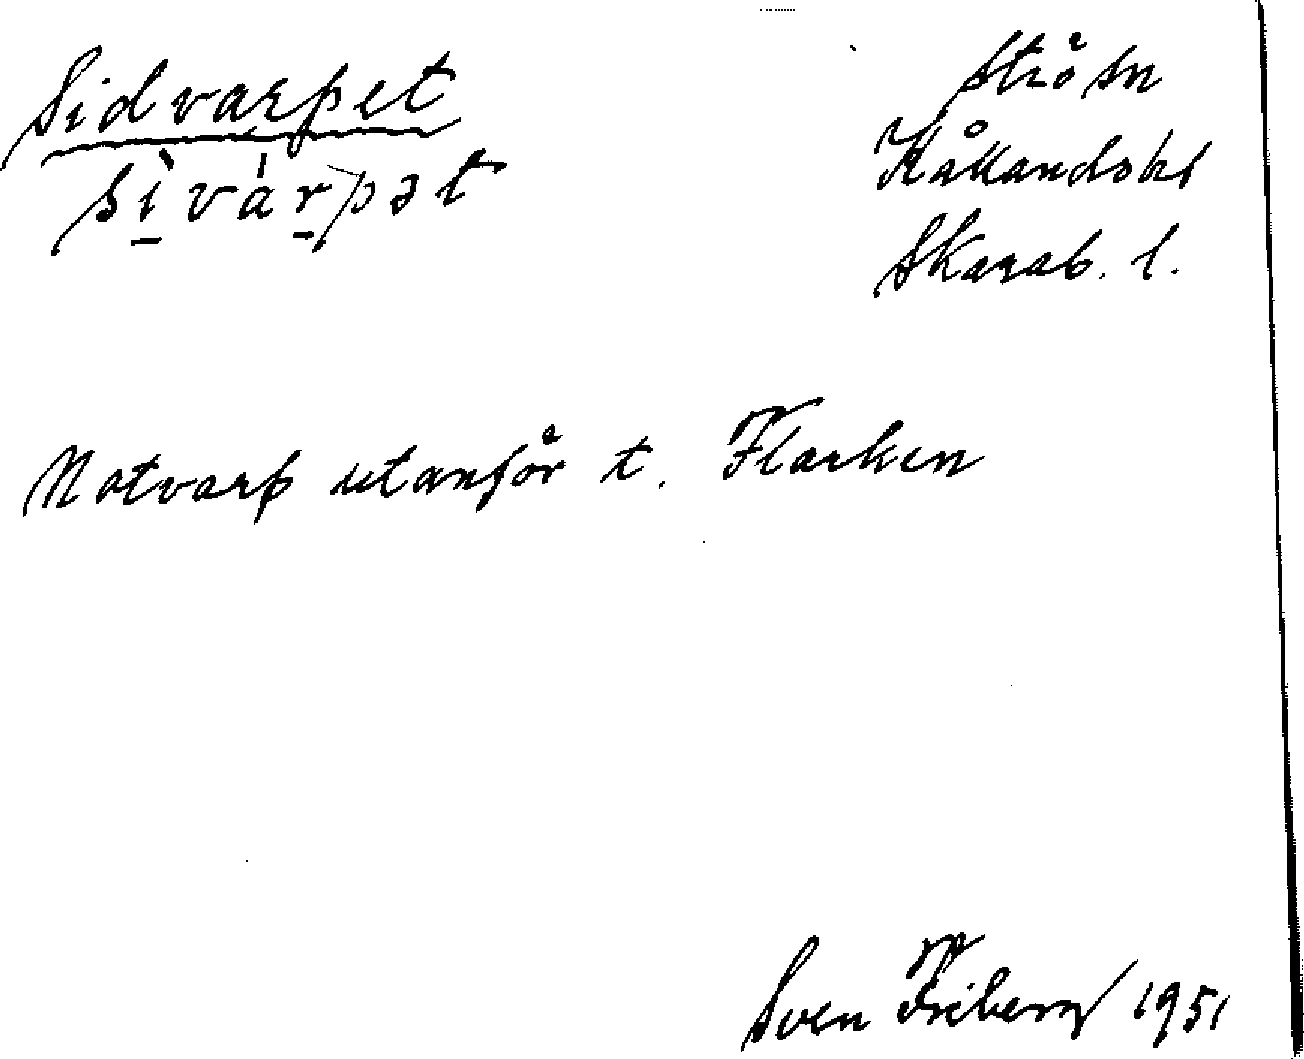 Sidvarpet
sìvárpət
Strösn
Kållandshd
Skarab. l.
Notvarp utanför t. Flarken
Sven Friberg 1951